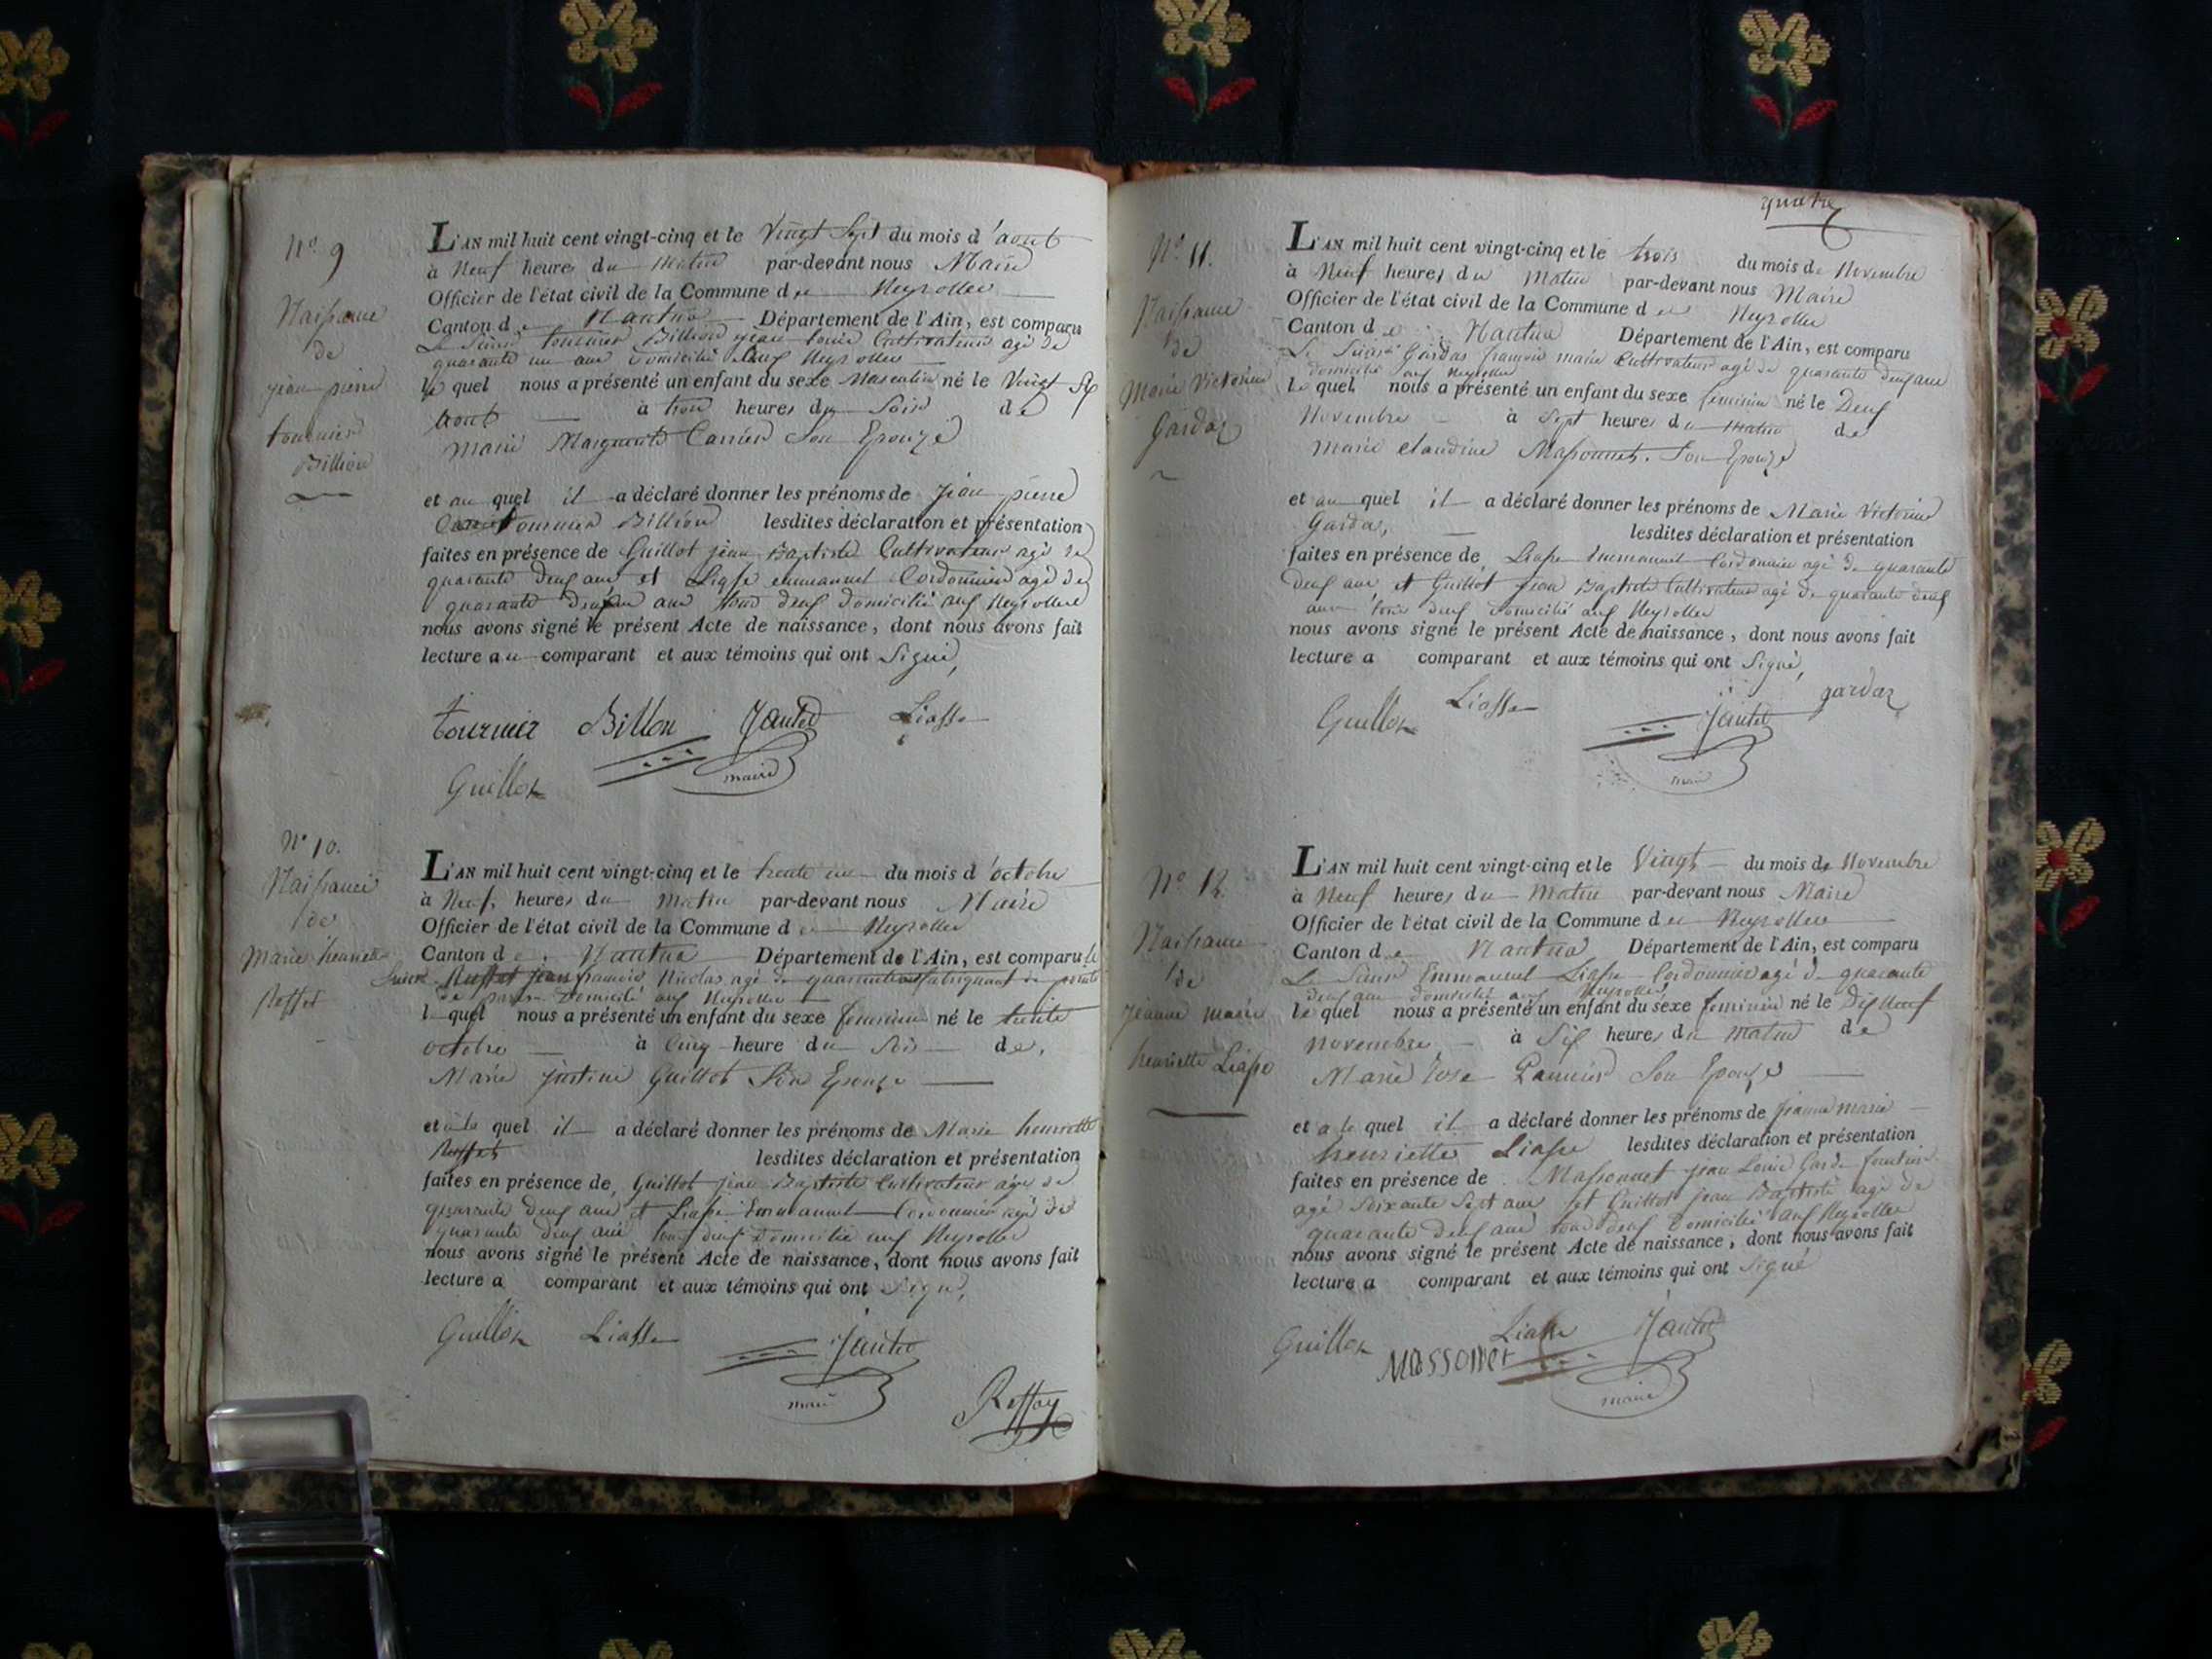 N° 9
Naissance
de
jean pierre
tournier
Billion
L'AN mil huit cent vingt-cinq et le Vingt Sept du mois d'aout
à Neuf heures du Matin par-devant nous Maire
Officier de l'état civil de la Commune de Neyrolles
Canton de Nantua Département de l'Ain, est comparu
Le Sieur tournier Billion jean Louis Cultivateur agé de
quarante un ans domicilié aux Neyrolles
le quel nous a présenté un enfant du sexe Masculin né le Vingt Six
Aout à trois heures du Soir de
Marie Marguerite Carrier Son Epouze
et au quel il a déclaré donner les prénoms de jean pierre
tournier Billion lesdites déclaration et présentation
faites en présence de Guillot jean Baptiste Cultivateur agé de
quarante deux ans et Liasse emmanuel Cordonnier agé de
quarante deux ans tous deux domicilié aux Neyrolles
nous avons signé le présent Acte de naissance, dont nous avons fait
lecture au comparant et aux témoins qui ont Signé,
tournier Billon Jantet Liasse
maire
Guillot
N° 10.
Naissance
de
Marie henriette
Roffet
L'AN mil huit cent vingt-cinq et le trente un du mois d'octobre
à Neuf heures du Matin par-devant nous Maire
Officier de l'état civil de la Commune de Neyrolles
Canton de Nantua Département de l'Ain, est comparu le
Sieur jean francois Nicolas agé de fabriquant de
domicilié aux Neyrolles
lequel nous a présenté un enfant du sexe feminin né le trente
octobre à Cinq heure du Soir de
Marie justine Guillot Son Epouze
et à la quel il a déclaré donner les prénoms de Marie henriette
lesdites déclaration et présentation
faites en présence de Guillot jean Baptiste Cultivateur agé de
quarante deux ans et Liasse Emmanuel Cordonnier agé de
quarante deux ans tous deux Domicilié aux Neyrolles
nous avons signé le présent Acte de naissance, dont nous avons fait
lecture a comparant et aux témoins qui ont Signé,
Guillot Liasse Jantet
maire
quatre
N° 11.
Naissance
de
Marie Victorine
Gardaz
L'AN mil huit cent vingt-cinq et le trois du mois de Novembre
à Neuf heures du Matin par-devant nous Maire
Officier de l'état civil de la Commune de Neyrolles
Canton de Nantua Département de l'Ain, est comparu
Le Sieur Gardas francois marie Cultivateur agé de quarante deux ans
domicilié aux Neyrolles
le quel nous a présenté un enfant du sexe feminin né le Deux
Novembre à Sept heures du Matin de
Marie claudine Massonnet Son Epouze
et au quel il a déclaré donner les prénoms de Marie Victorine
Gardas, lesdites déclaration et présentation
faites en présence de Liasse Emmanuel Cordonnier agé de quarante
deux ans et Guillot jean Baptiste Cultivateur agé de quarante deux
ans tous deux domicilié aux Neyrolles
nous avons signé le présent Acte de naissance, dont nous avons fait
lecture a comparant et aux témoins qui ont Signé,
Guillot Liasse Jantet gardaz
maire
N° 12.
Naissance
de
jeanne marie
henriette Liasse
L'AN mil huit cent vingt-cinq et le Vingt du mois de Novembre
à Neuf heures du Matin par-devant nous Maire
Officier de l'état civil de la Commune de Neyrolles
Canton de Nantua Département de l'Ain, est comparu
Le Sieur Emmanuel Liasse Cordonnier agé de quarante
deux ans domicilié aux Neyrolles
le quel nous a présenté un enfant du sexe feminin né le Dix Neuf
novembre à Six heures du matin de
Marie Rose Son Epouze
et a le quel il a déclaré donner les prénoms de jeanne marie
henriette Liasse lesdites déclaration et présentation
faites en présence de Massonnet jean Louis Garde
agé Soixante Sept ans et Guillot jean Baptiste agé de
quarante deux ans tous deux Domicilié aux Neyrolles
nous avons signé le présent Acte de naissance, dont nous avons fait
lecture a comparant et aux témoins qui ont Signé
Guillot Massonet Liasse Jantet
maire